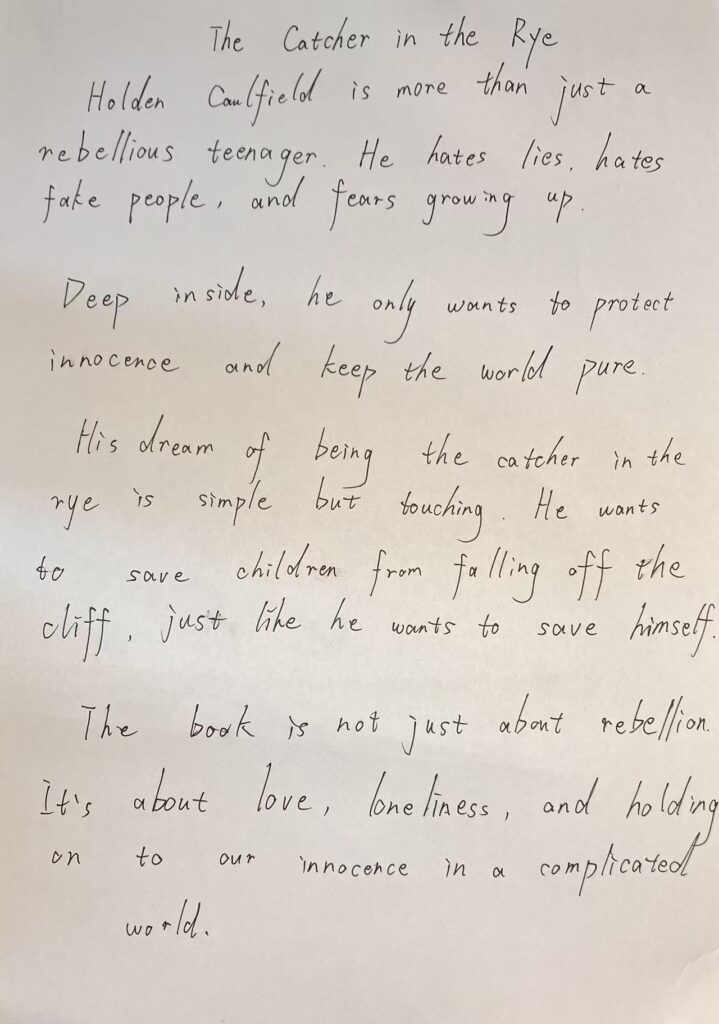 The Catcher in the Rye
Holden Caulfield is more than just a
rebellious teenager. He hates lies, hates
fake people, and fears growing up.
Deep inside, he only wants to protect
innocence and keep the world pure.
His dream of being the catcher in the
rye is simple but touching. He wants
to save children from falling off the
cliff, just like he wants to save himself.
The book is not just about rebellion.
It's about love, loneliness, and holding
on to our innocence in a complicated
world.